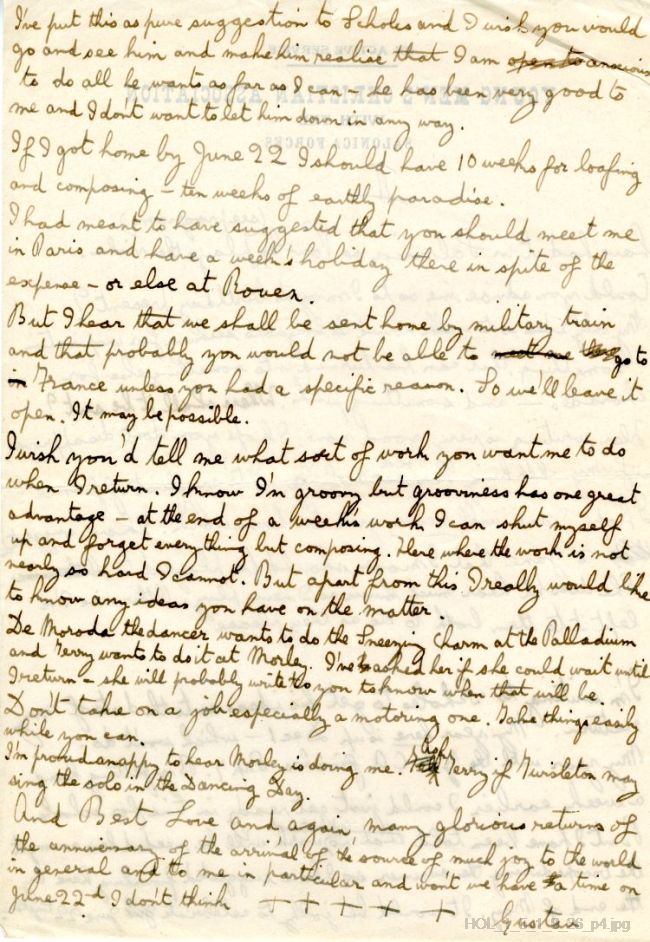 I've put this as pure suggestion to Scholes and I wish you would
go and see him and make him realise that I am open to anxious
to do all he wants as far as I can – he has been very good to
me and I don't want to let him down in any way.
If I got home by June 22 I should have 10 weeks for loafing
and composing – ten weeks of earthly paradise.
I had meant to have suggested that you should meet me
in Paris and have a week's holiday there in spite of the
expense – or else at Rouen.
But I hear that we shall be sent home by military train
and that probably you would not be able to meet me go to
in France unless you had a specific reason. So we'll leave it
open. It may be possible.
I wish you'd tell me what sort of work you want me to do
when I return. I know I'm groovy but grooviness has one great
advantage – at the end of a week's work I can shut myself
up and forget everything but composing. Here where the work is not
nearly so hard I cannot. But apart from this I really would like
to know any ideas you have on the matter.
De Moroda the dancer wants to do the Sneezing Charm at the Palladium
and Terry wants to do it at Morley. I've asked her if she could wait until
I return – she will probably write to you to know when that will be.
Don't take on a job especially a motoring one. Take things easily
while you can.
I'm proudanappy to hear Morley is doing me. Ask Terry if Twisleton may
sing the solo in the Dancing Day.
And Best Love and again many glorious returns of
the anniversary of the arrival of the source of much joy to the world
in general and to me in particular and won't we have a time on
June 22d I don't think + + + + + Gustav
YOUNG MEN'S CHRISTIAN ASSOCIATION
SALONICA FORCES
HOL_p4.jpg